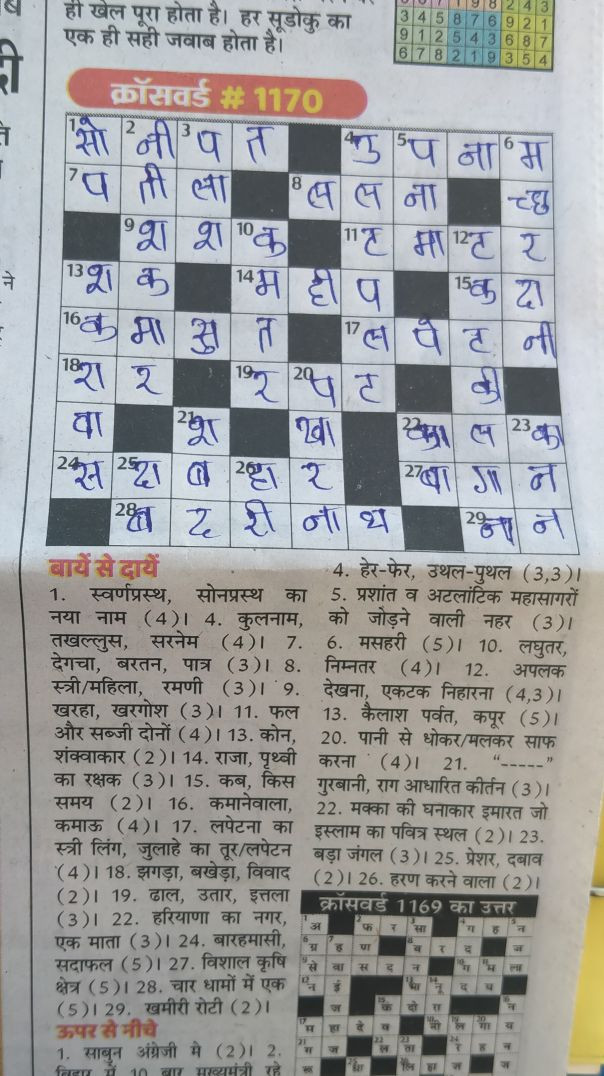 ही खेल पूरा होता है। हर सूडोकु का
एक ही सही जवाब होता है।
3 4 5 8 7 6 9 2 1
9 1 2 5 4 3 6 8 7
6 7 8 2 1 9 3 5 4
क्रॉसवर्ड # 1170
1 सो 2 नी 3 प त 4 उ 5 प ना 6 म
7 प ती ला 8 ल ल ना च्छ
9 श श 10 क 11 ट मा 12 ट र
13 श क 14 म ही प 15 क दा
16 क मा सु त 17 ल पे ट नी
18 रा र 19 र 20 प ट की
वा 21 श खा 22 का ल 23 का
24 स 25 दा ब 26 हा र 27 बा गा न
28 ब द री ना थ 29 ना न
बायें से दायें
1. स्वर्णप्रस्थ, सोनप्रस्थ का
नया नाम (4)। 4. कुलनाम,
तखल्लुस, सरनेम (4)। 7.
देगचा, बरतन, पात्र (3)। 8.
स्त्री/महिला, रमणी (3)। 9.
खरहा, खरगोश (3)। 11. फल
और सब्जी दोनों (4)। 13. कोन,
शंक्वाकार (2)। 14. राजा, पृथ्वी
का रक्षक (3)। 15. कब, किस
समय (2)। 16. कमानेवाला,
कमाऊ (4)। 17. लपेटना का
स्त्री लिंग, जुलाहे का तूर/लपेटन
(4)। 18. झगड़ा, बखेड़ा, विवाद
(2)। 19. ढाल, उतार, इत्तला
(3)। 22. हरियाणा का नगर,
एक माता (3)। 24. बारहमासी,
सदाफल (5)। 27. विशाल कृषि
क्षेत्र (5)। 28. चार धामों में एक
(5)। 29. खमीरी रोटी (2)।
ऊपर से नीचे
1. साबुन अंग्रेजी मे (2)। 2.
बिहार में 10 बार मुख्यमंत्री रहे
4. हेर-फेर, उथल-पुथल (3,3)।
5. प्रशांत व अटलांटिक महासागरों
को जोड़ने वाली नहर (3)।
6. मसहरी (5)। 10. लघुतर,
निम्नतर (4)। 12. अपलक
देखना, एकटक निहारना (4,3)।
13. कैलाश पर्वत, कपूर (5)।
20. पानी से धोकर/मलकर साफ
करना (4)। 21. "-----"
गुरबानी, राग आधारित कीर्तन (3)।
22. मक्का की घनाकार इमारत जो
इस्लाम का पवित्र स्थल (2)। 23.
बड़ा जंगल (3)। 25. प्रेशर, दबाव
(2)। 26. हरण करने वाला (2)।
क्रॉसवर्ड 1169 का उत्तर